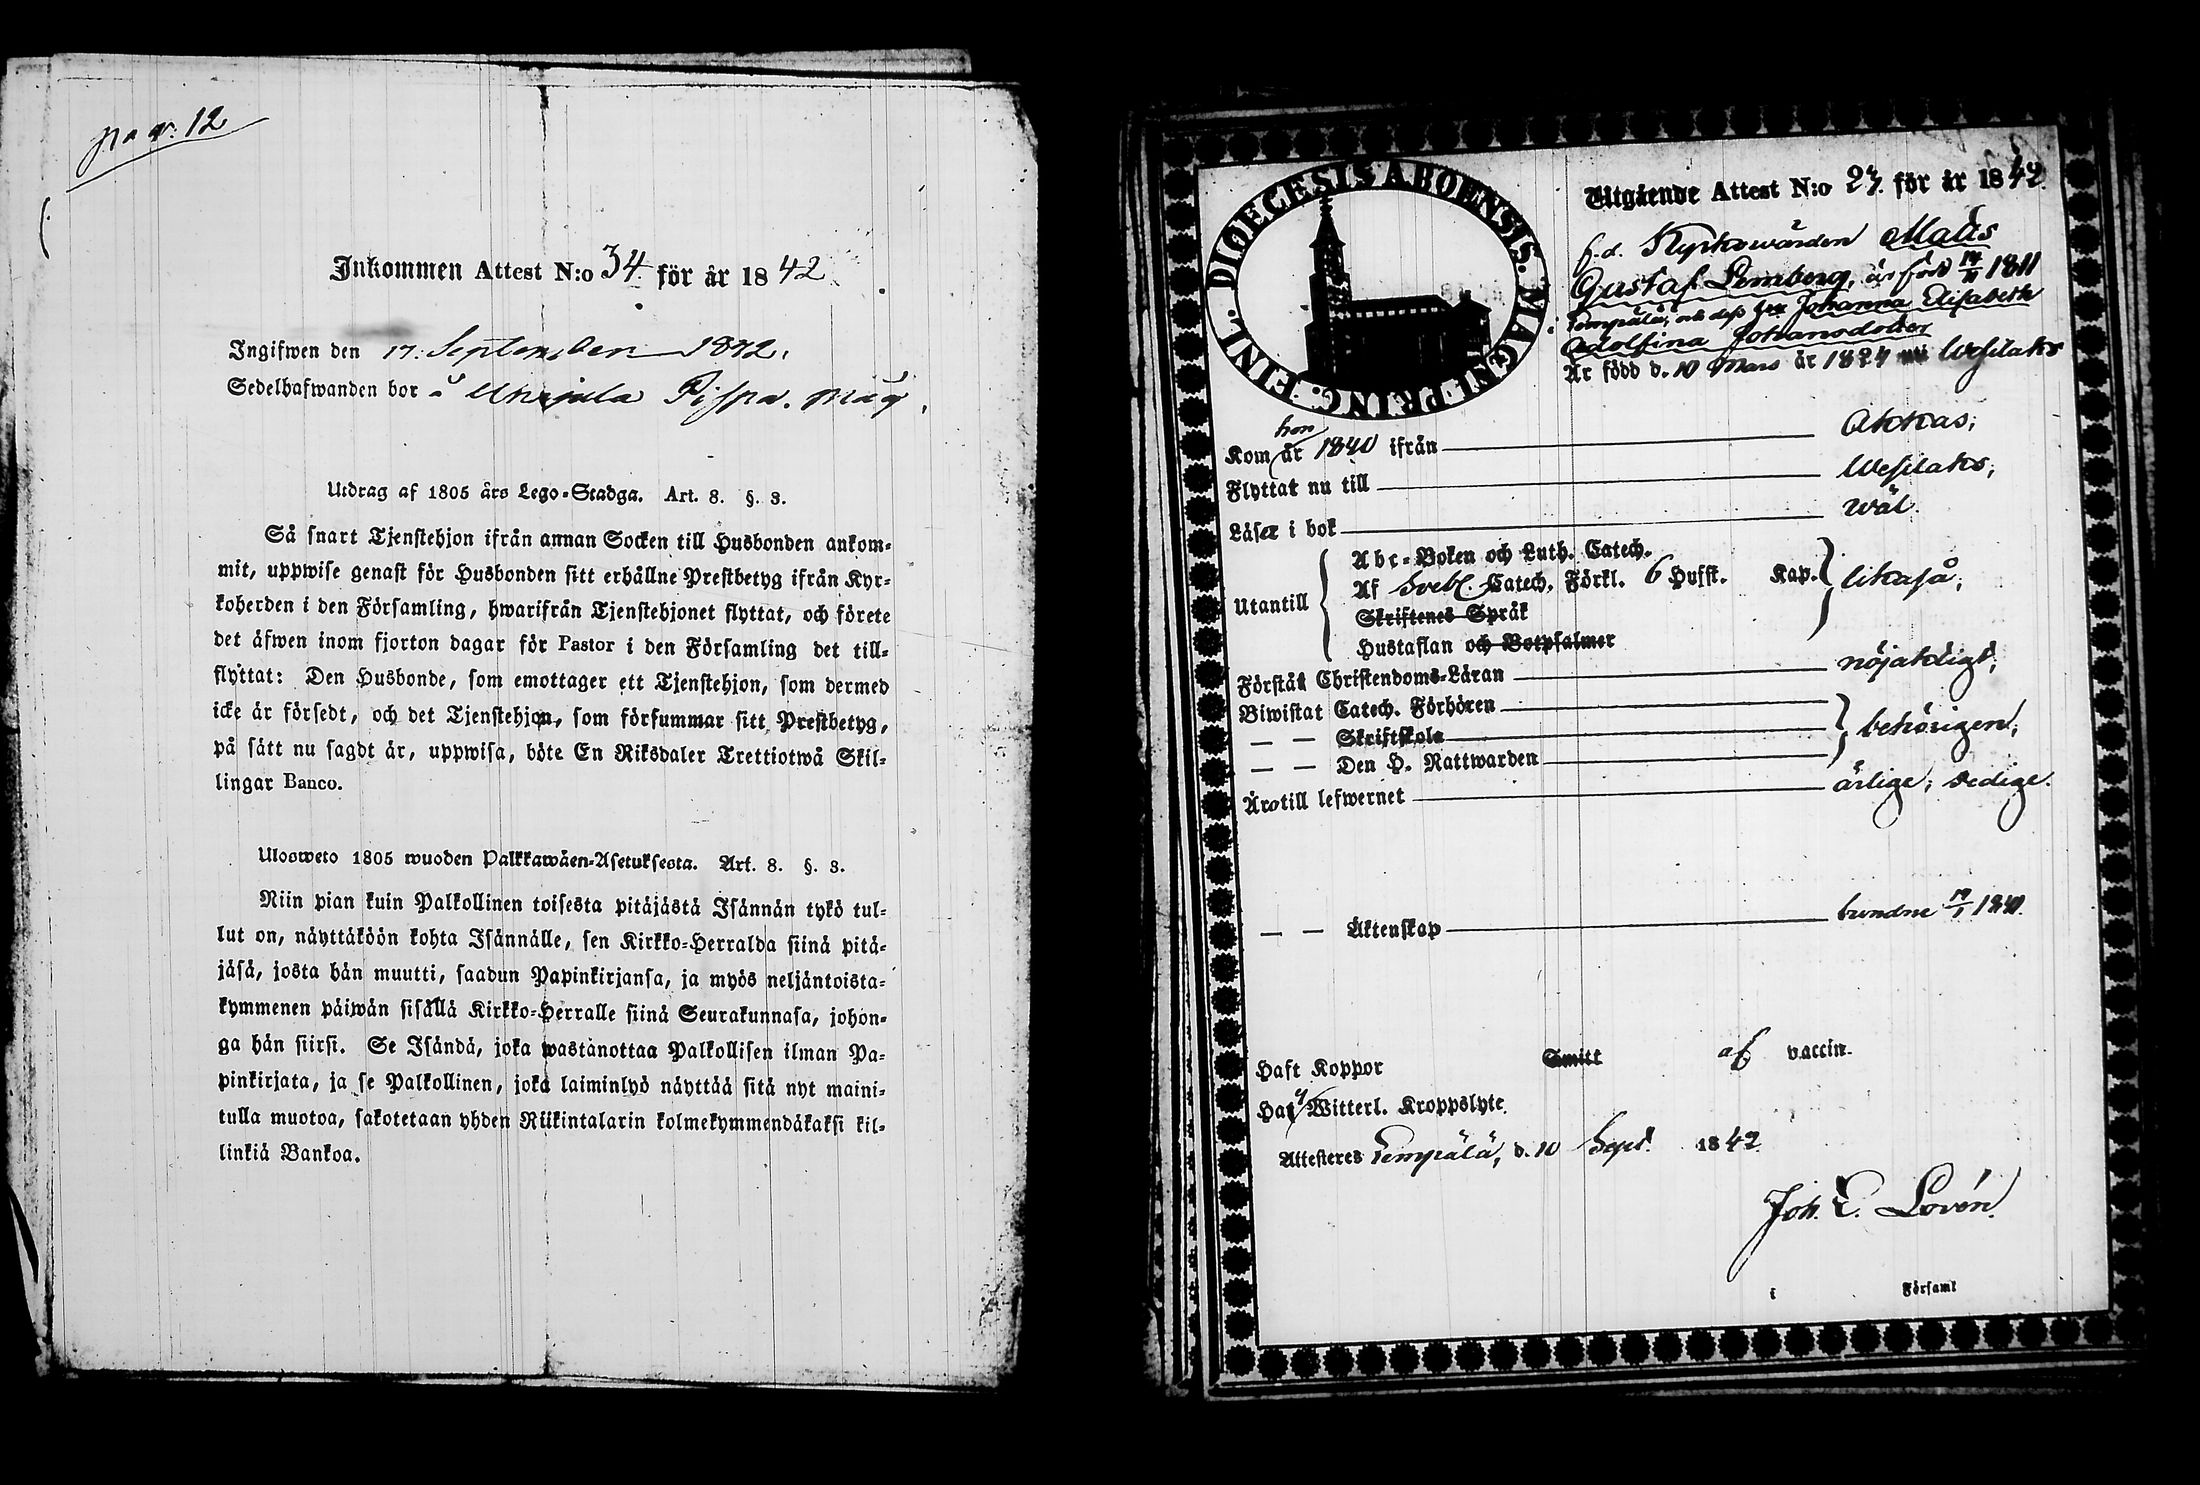 no qv: 12
Inkommen Attest N:o 34 för år 1842
Ingifwen den 17. September 1842.
Sedelhafwanden bor å
Utdrag af 1805 års Lego-Stadga. Art. 8. §. 3.
Så snart Tjenstehjon ifrån annan Socken till Husbonden ankom-
mit, uppwise genast för Husbonden sitt erhållne Prestbetyg ifrån Kyr-
koherden i den Församling, hwarifrån Tjenstehjonet flyttat, och förete
det äfwen inom fjorton dagar för Pastor i den Församling det till-
flyttat: Den Husbonde, som emottager ett Tjenstehjon, som dermed
icke är försedt, och det Tjenstehjon, som försummar sitt Prestbetyg,
på sätt nu sagdt är, uppwisa, böte En Riksdaler Trettiotwå Skil-
lingar Banco.
Ulosweto 1805 wuoden Palkkawäen-Asetuksesta. Art. 8. §. 3.
Niin pian kuin Palkollinen toisesta pitäjästä Isännän tykö tul-
lut on, näyttäköön kohta Isännälle, sen Kirkko-Herralda siinä pitä-
jäsä, josta hän muutti, saadun Papinkirjansa, ja myös neljäntoista-
kymmenen päiwän sisällä Kirkko-Herralle siinä Seurakunnasa, johon-
ga hän siirsi. Se Isändä, joka wastanottaa Palkollisen ilman Pa-
pinkirjata, ja se Palkollinen, joka laiminlyö näyttää sitä nyt maini-
tulla muotoa, sakotetaan yhden Riikintalarin kolmekymmendäkaksi kil-
linkiä Bankoa.
DIOECESIS ABOENSIS. MAGNI PRINC. FINL.
Utgående Attest N:o 27. för år 1842.
f.d. Kypkowärden Matts
Gustaf Lemberg, är född 1811
i Lempälä, och dess Johanna Elisabeth
Adolfina Johansdotter
Är född d. 10 Mars år 1824 Wesilaks
Kom hon år 1840 ifrån Akkas;
Flyttat nu till Wesilaks;
Läser i bok wäl.
Utantill
Abc-Boken och Luth. Catech.
Af Svebl. Catech. Förkl. 6 Hufst. Kap. likaså;
Skriftenes Språk
Hustaflan och Botpsalmer
Förstår Christendoms-Läran nöjaktigt;
Biwistat Catech. Förhören
— — Skriftskola behörigen;
— — Den H. Nattwarden
Äro till lefwernet ärlige; sedige.
— — Äktenskap bundne
Haft Koppor Smitt af vaccin.
Haf Witterl. Kroppslyte.
Attesteres Lempälä, d. 10 Sept. 1842.
Joh. E. Lovén.
i Församl